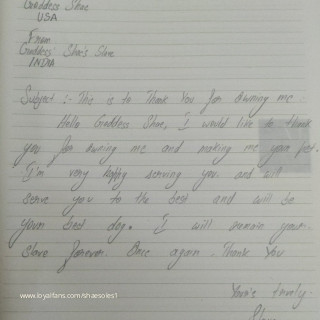 Goddess Shae
USA
From
Goddess Shae's Slave
INDIA
Subject :- This is to Thank You for Owning me
Hello Goddess Shae, I would like to thank
you for owning me and making me your pet.
I'm very happy serving you and will
serve you to the best and will be
your best dog. I will remain your
slave forever. Once again Thank You
www.loyalfans.com/shaesoles1
You're truely
Slave